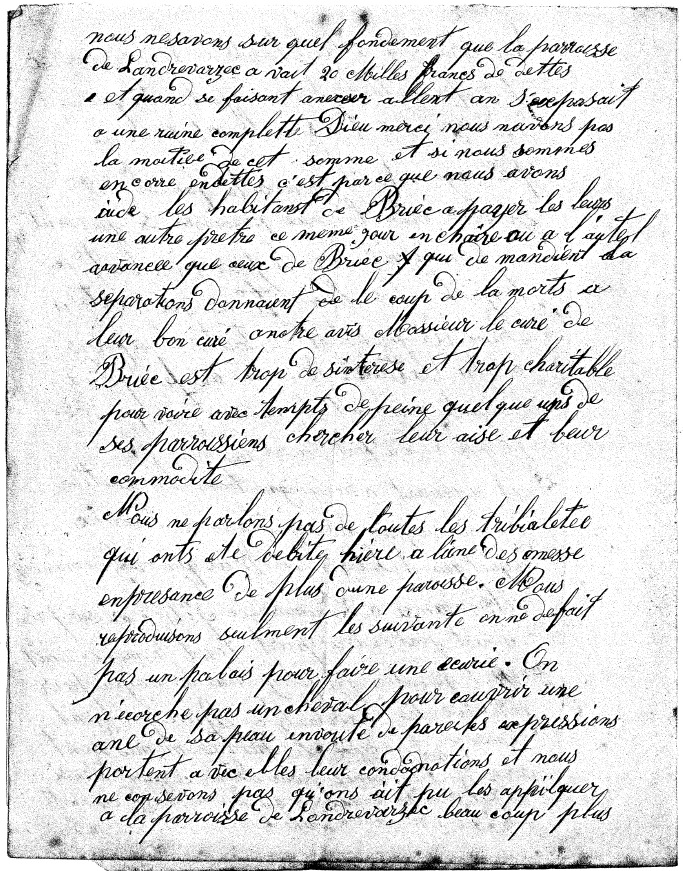 nous nesavons sur quel fondement que la parroisse
de Landrevarzec a vait 20 Milles francs de dettes
et quand se faisant anexer allent an s'exposait
a une ruine complette Dieu merci nous navons pas
la moitiée de cet somme et si nous sommes
encorre endettes c'est parce que nous avons
aidé les habitanst de Briéc a payer les leurs
une autre pretre ce meme jour en chaire ou a l'autel
avancee que ceux de Briéc qui de mandient la
séparations donnaient de le coup de la morts a
leur bon curé anotre avis Monssieur le curé de
Briéc est trop de sinterese et trop charitable
pour voire avec tempts de peine quelque uns de
ses parroissiens chercher leur aise et leur
commodite
Nous ne parlons pas de toutes les tribialetee
qui onts ete debite hière a lane des messe
enpresance de plus dune paroisse. Nous
reproduisons seulment les suivante onne defait
pas un palais pour faire une ecurie. On
n'ecorche pas un cheval pour couvrir une
ane de sa peau envoute de pareiles expressions
portent a vec elles leur condanations et nous
ne consevons pas qu'ons ait pu les appilquer
a la parroisse de Landrevarzec beau coup plus